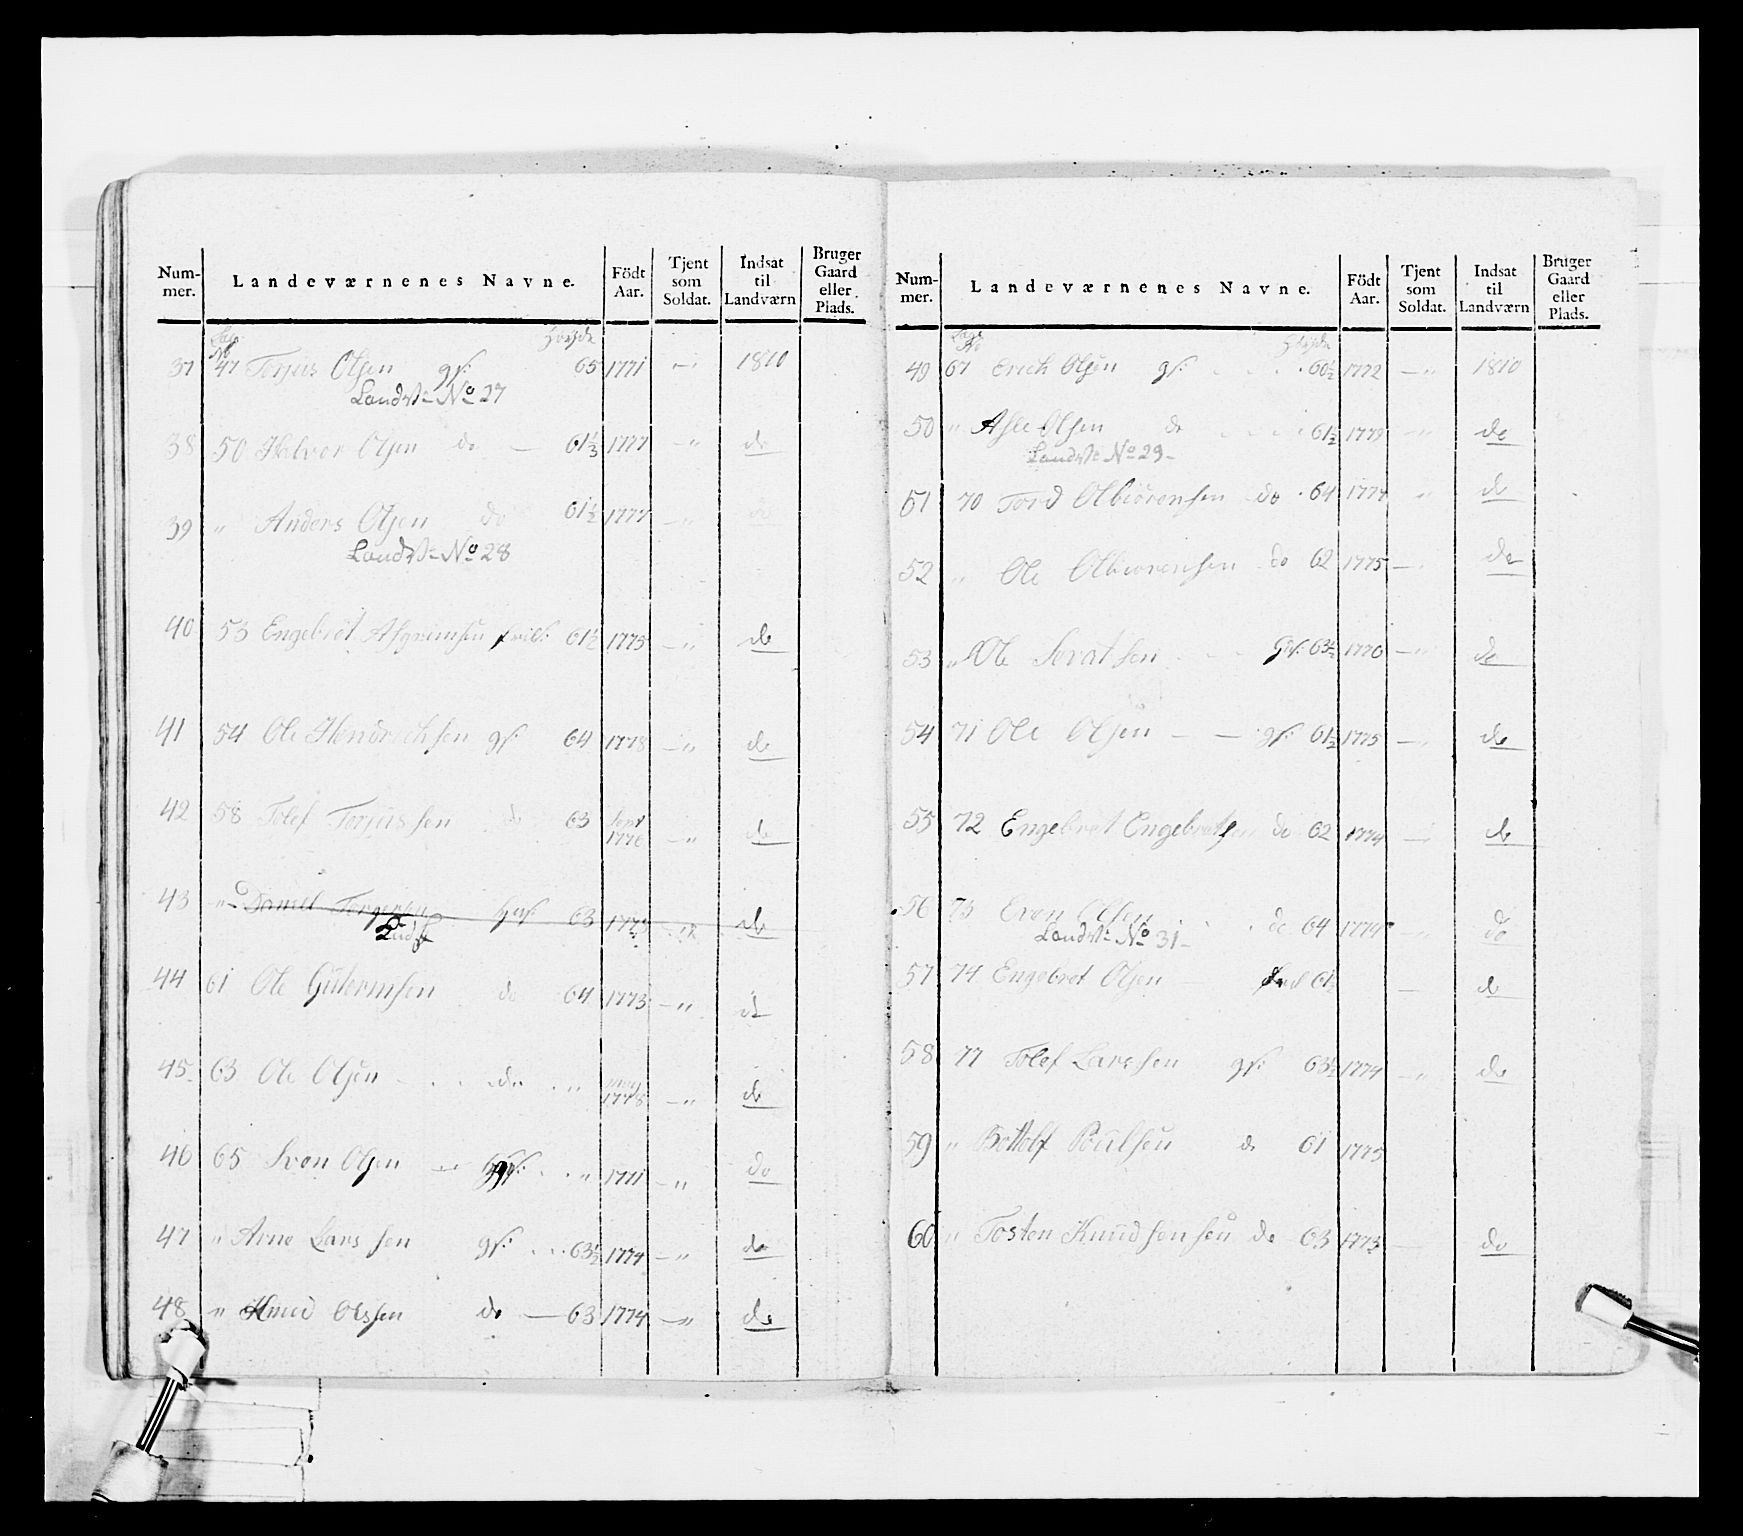 Num-mer. Landeværnenes Navne. Födt Aar. Tjent som Soldat. Indsat til Landværn Bruger Gaard eller Plads.
Lægs No Höyde
37 47 Torjus Olsen gf: 65 1771 —" 1810
Landv: No 27
38 50 Halvor Olsen do — 61 1/3 1777 —" do
39 " Anders Olsen do 61 1/2 1777 —" do
Landv: No 28
40 53 Engebret Asgrimsen 61 1/2 1775 —" do
41 54 Ole Hendrichsen gf: 64 1778 —" do
42 58 Tolef Torjussen do 63 1776 —" do
43 " Daniell Torgersen 63 1773 do
44 61 Ole Gutermsen do 64 1773 —" do
45 63 Ole Olsen do " 1778 —" do
46 65 Sven Olsen gf: " 1771 —" do
47 " Arne Larssen gf: 63 1/2 1774 —" do
48 " Knud Olssen do — 63 1774 —" do
Num-mer. Landeværnenes Navne. Födt Aar. Tjent som Soldat. Indsat til Landværn Bruger Gaard eller Plads.
Lægs No Höyde
49 67 Erich Olsen gf: 60 1/2 1772 —" 1810
50 " Asle Olsen do 61 1/2 1779 —" do
Landv: No 29
51 70 Tord Olbiörensen do 64 1777 " do
52 " Ole Olbiorensen do 62 1775 —" do
53 " Ole Sevatsen gf: 63 1/2 1776 —" do
54 71 Ole Olsen — — gf: 61 1/2 1775 —" do
55 72 Engebret Engebretsen do 62 1774 —" do
56 73 Even Olsen do 64 1774 —" do
Landv: No 31
57 74 Engebret Olsen 61 1/2 — do
58 77 Tolef Larssen gf: 63 1/2 1774 —" do
59 " Bottolf Poulsen do 61 1775
60 " Tosten Knudsen do 63 1773 — do